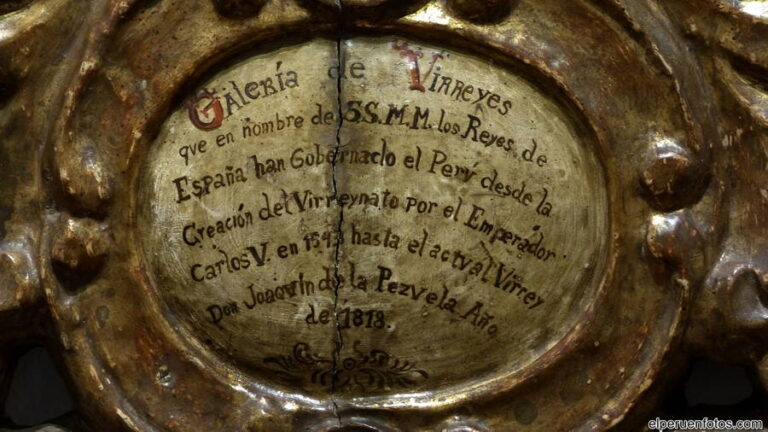 Galería de Virreyes
que en nombre de SS.M.M. los Reyes de
España han Gobernado el Perú desde la
Creación del Virreynato por el Emperador
Carlos V. en 1543 hasta el actval Virrey
Don Joaqvín de la Pezvela Año
de 1818.
elperuenfotos.com